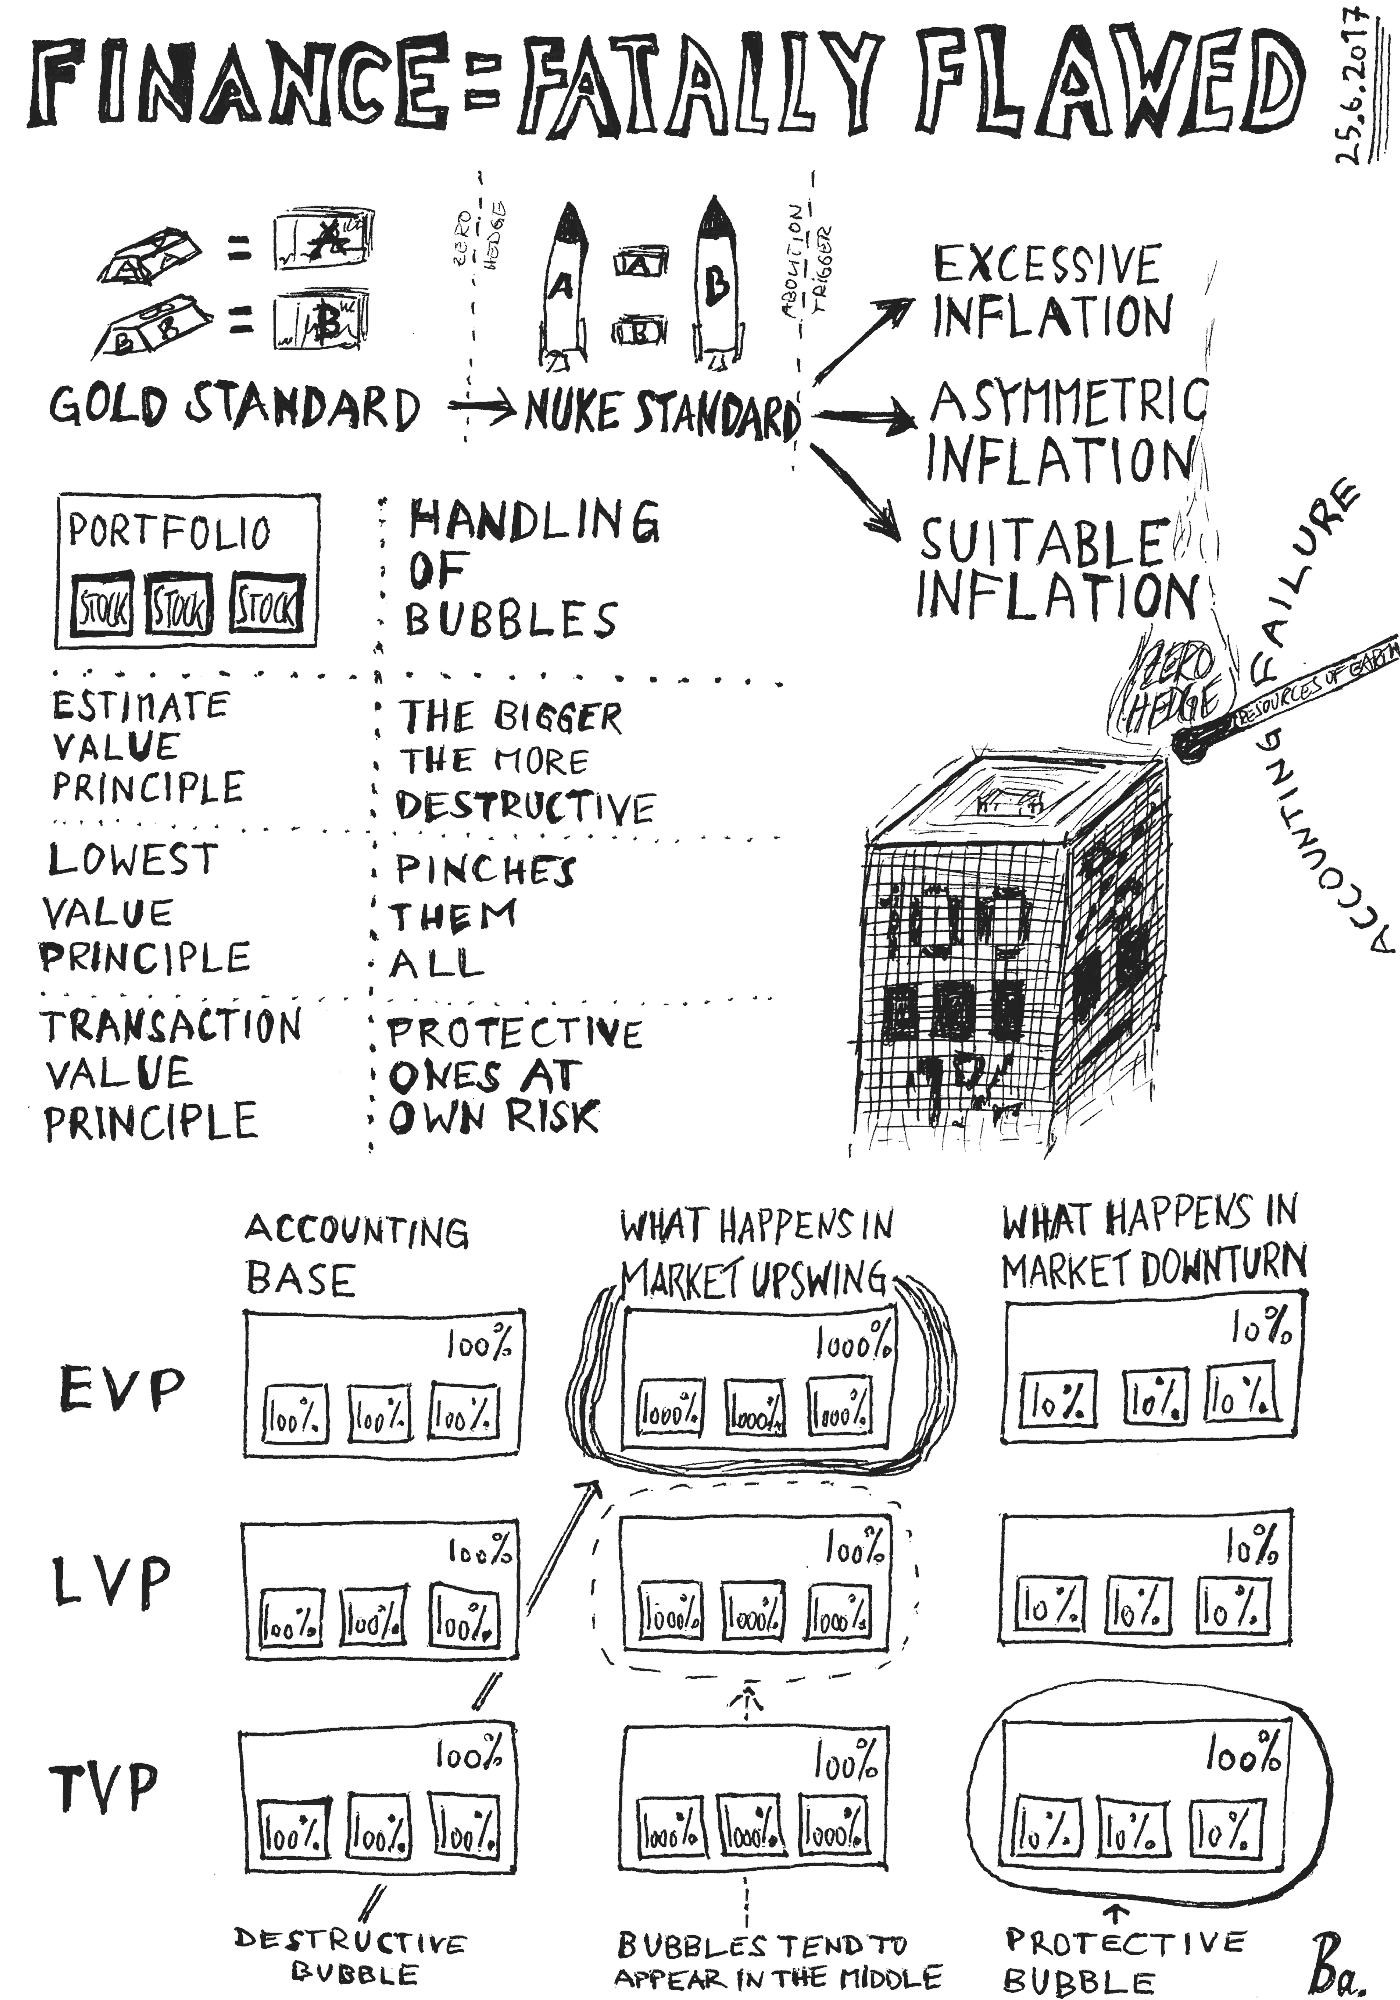 FINANCE=FATALLY FLAWED
25.6.2017
A A = A
B B = B
ZERO
HEDGE
A A B
B
ABOLITION
TRIGGER
GOLD STANDARD → NUKE STANDARD
EXCESSIVE
INFLATION
ASYMMETRIC
INFLATION
SUITABLE
INFLATION
PORTFOLIO
STOCK STOCK STOCK
HANDLING
OF
BUBBLES
ESTIMATE
VALUE
PRINCIPLE
THE BIGGER
THE MORE
DESTRUCTIVE
LOWEST
VALUE
PRINCIPLE
PINCHES
THEM
ALL
TRANSACTION
VALUE
PRINCIPLE
PROTECTIVE
ONES AT
OWN RISK
ZERO
HEDGE
RESOURCES OF EARTH
ACCOUNTING FAILURE
ACCOUNTING
BASE
WHAT HAPPENS IN
MARKET UPSWING
WHAT HAPPENS IN
MARKET DOWNTURN
EVP
100%
100% 100% 100%
1000%
1000% 1000% 1000%
10%
10% 10% 10%
LVP
100%
100% 100% 100%
100%
1000% 1000% 1000%
10%
10% 10% 10%
TVP
100%
100% 100% 100%
100%
1000% 1000% 1000%
100%
10% 10% 10%
DESTRUCTIVE
BUBBLE
BUBBLES TEND TO
APPEAR IN THE MIDDLE
PROTECTIVE
BUBBLE
Ba.